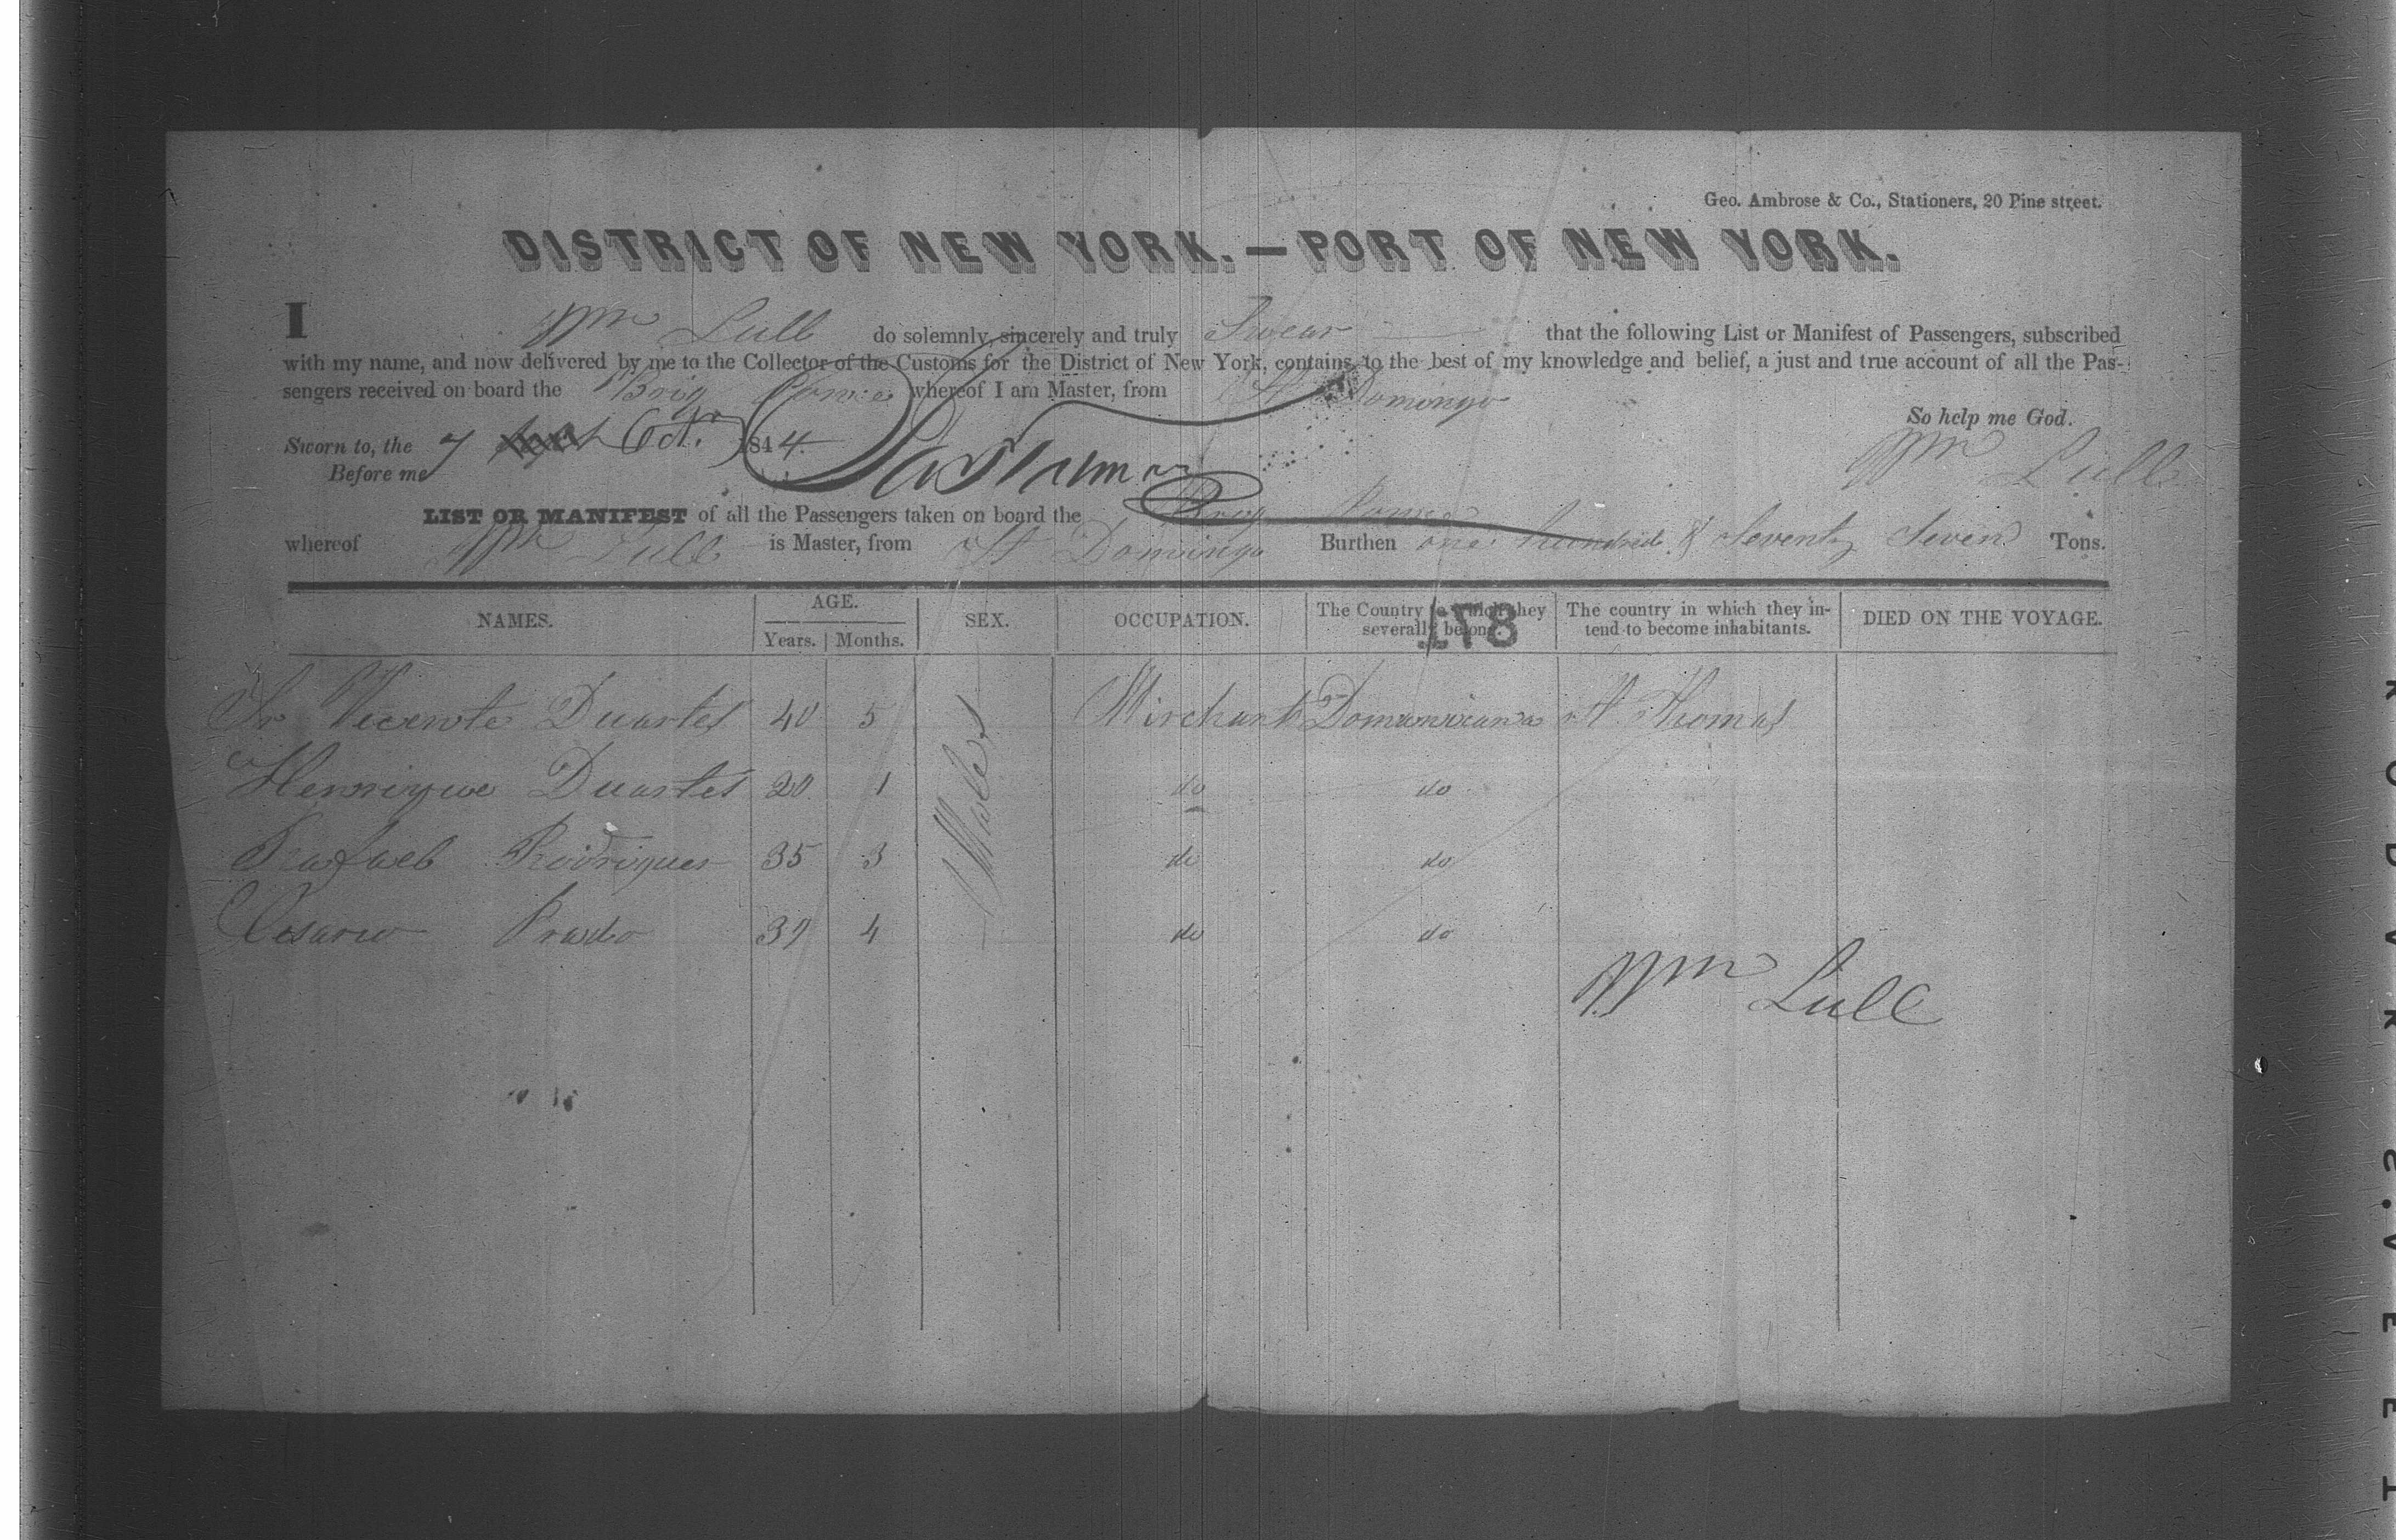 Geo. Ambrose & Co., Stationers, 20 Pine street.
DISTRICT OF NEW YORK.—PORT OF NEW YORK.
I Wm Lull do solemnly, sincerely and truly Swear that the following List or Manifest of Passengers, subscribed
with my name, and now delivered by me to the Collector of the Customs for the District of New York, contains, to the best of my knowledge and belief, a just and true account of all the Pas-
sengers received on board the Brig whereof I am Master, from St Domingo
So help me God.
Sworn to, the 7 Oct. 1844.
Before me
Wm Lull
LIST OR MANIFEST of all the Passengers taken on board the Brig
whereof Wm Lull is Master, from St Domingo Burthen one hundred & Seventy Seven Tons.
NAMES. AGE. SEX. OCCUPATION. The Country to which they severally belong. The country in which they in-tend to become inhabitants. DIED ON THE VOYAGE.
Years. Months.
178
Sr Vicente Duartes 40 5 Males Merchant St Thomas
Henrique Duartes 20 1 do do
Rafael Rodrigues 35 3 do do
Prado 39 4 do do
Wm Lull